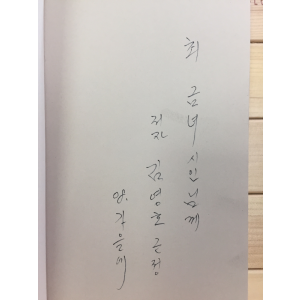 최 금녀 시인님께
필자 김영호 근정
98. 가을에